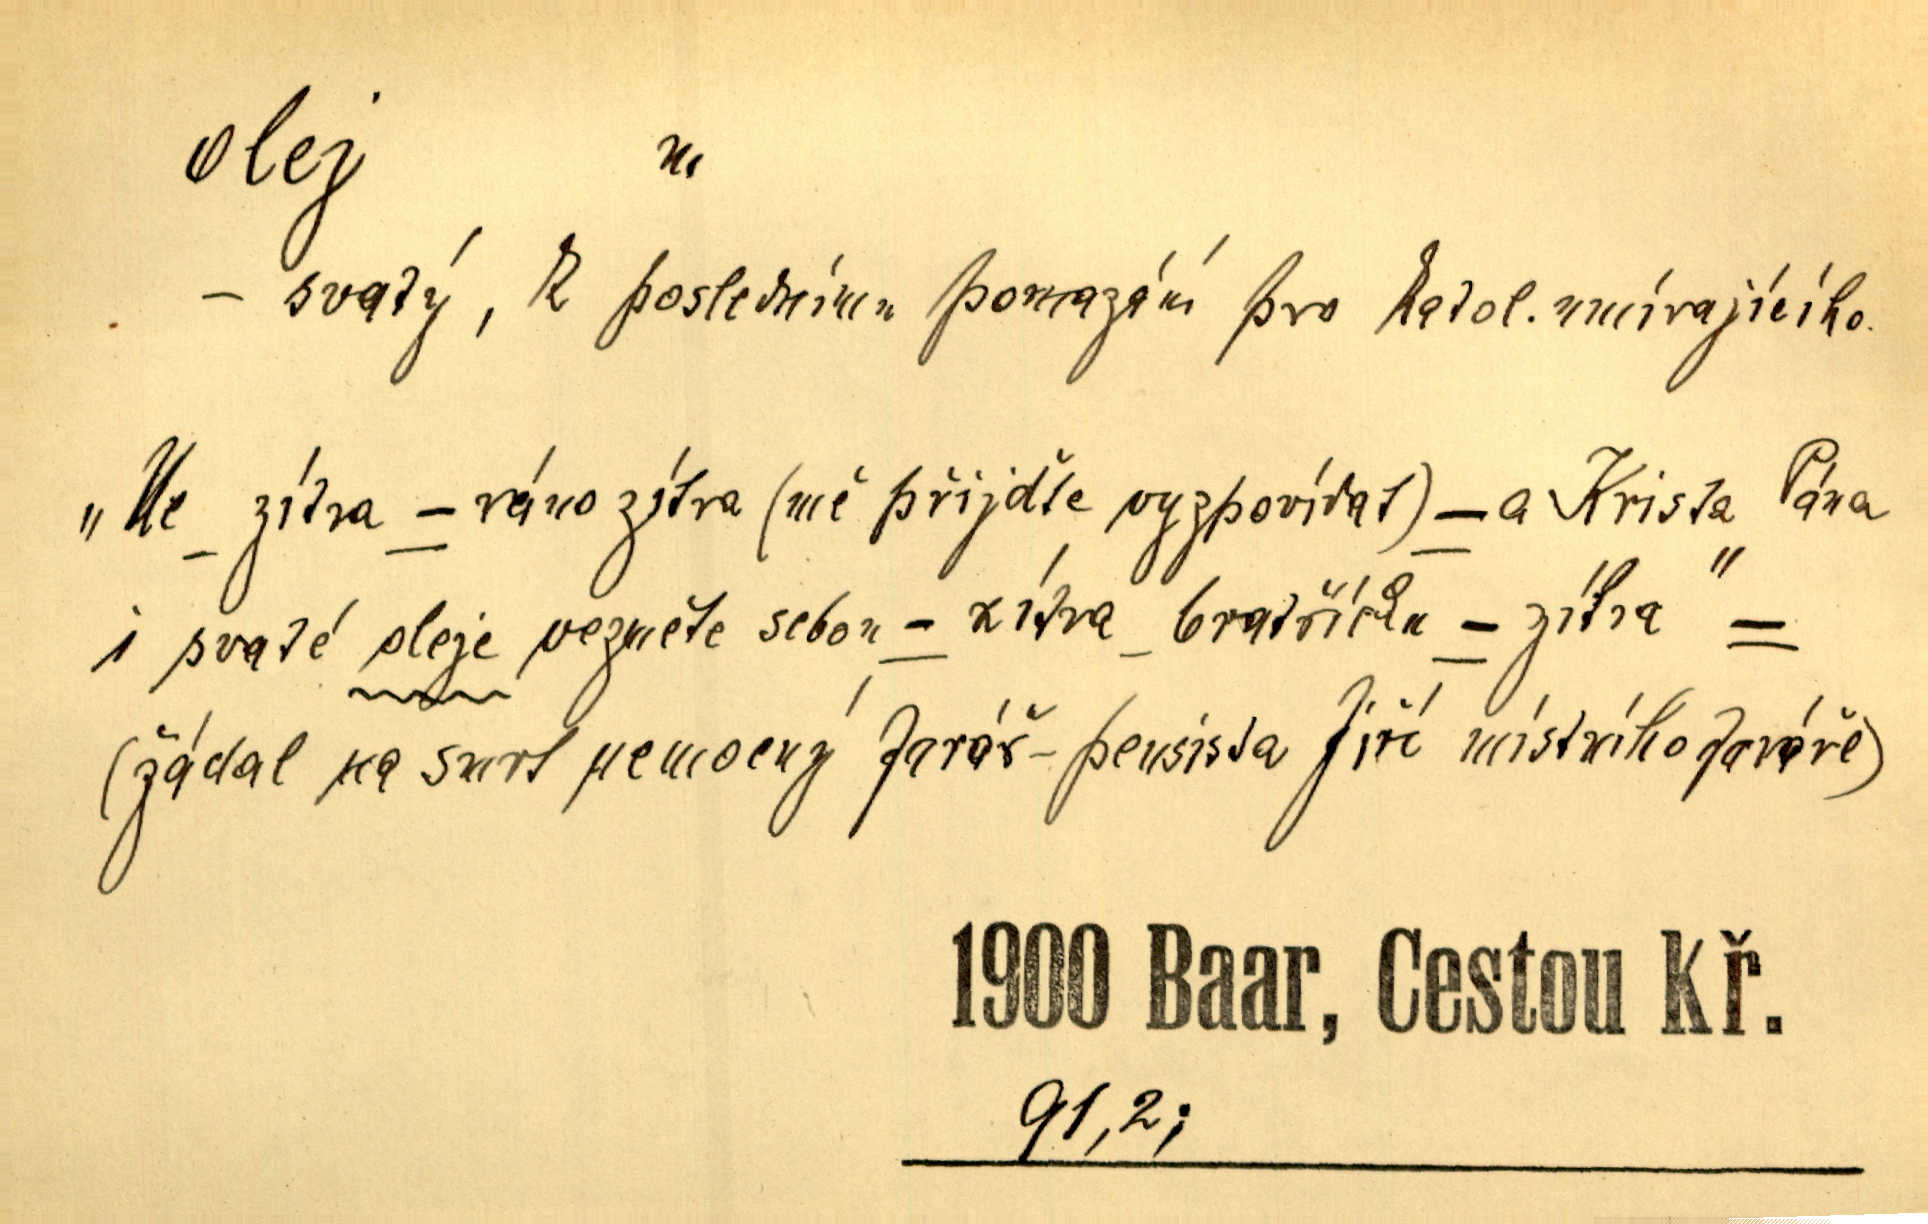 olej m.
– svatý, k poslednímu pomazání pro katol. umírajícího.
„Ne – zítra – ráno zítra (mě přijdťe vyzpovídat) – a Krista Pána
i svaté oleje vezměte sebou – zítra – bratříčku – zítra" =
(žádal na smrt nemocný farář-pensista Jiří místního faráře)
1900 Baar, Cestou Kř.
91,2;